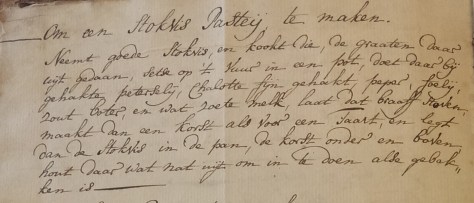 Om een Stokvis Pasteij, te maken.
Neemt goede Stokvis, en kookt die, de graaten daar
uijt gedaan, setse op 't Vuur in een pot, doet daar bij
gehakte peterselij, Chalotte fijn gehakt, peper, foelij,
zout boter, en wat zoete melk, laat dat braaff stoven,
maakt dan een korst als voor een Taart, en legt
dan de Stokvis in de pan, de korst onder en boven,
hout daar wat nat uijt om in te doen alse gebak„
ken is